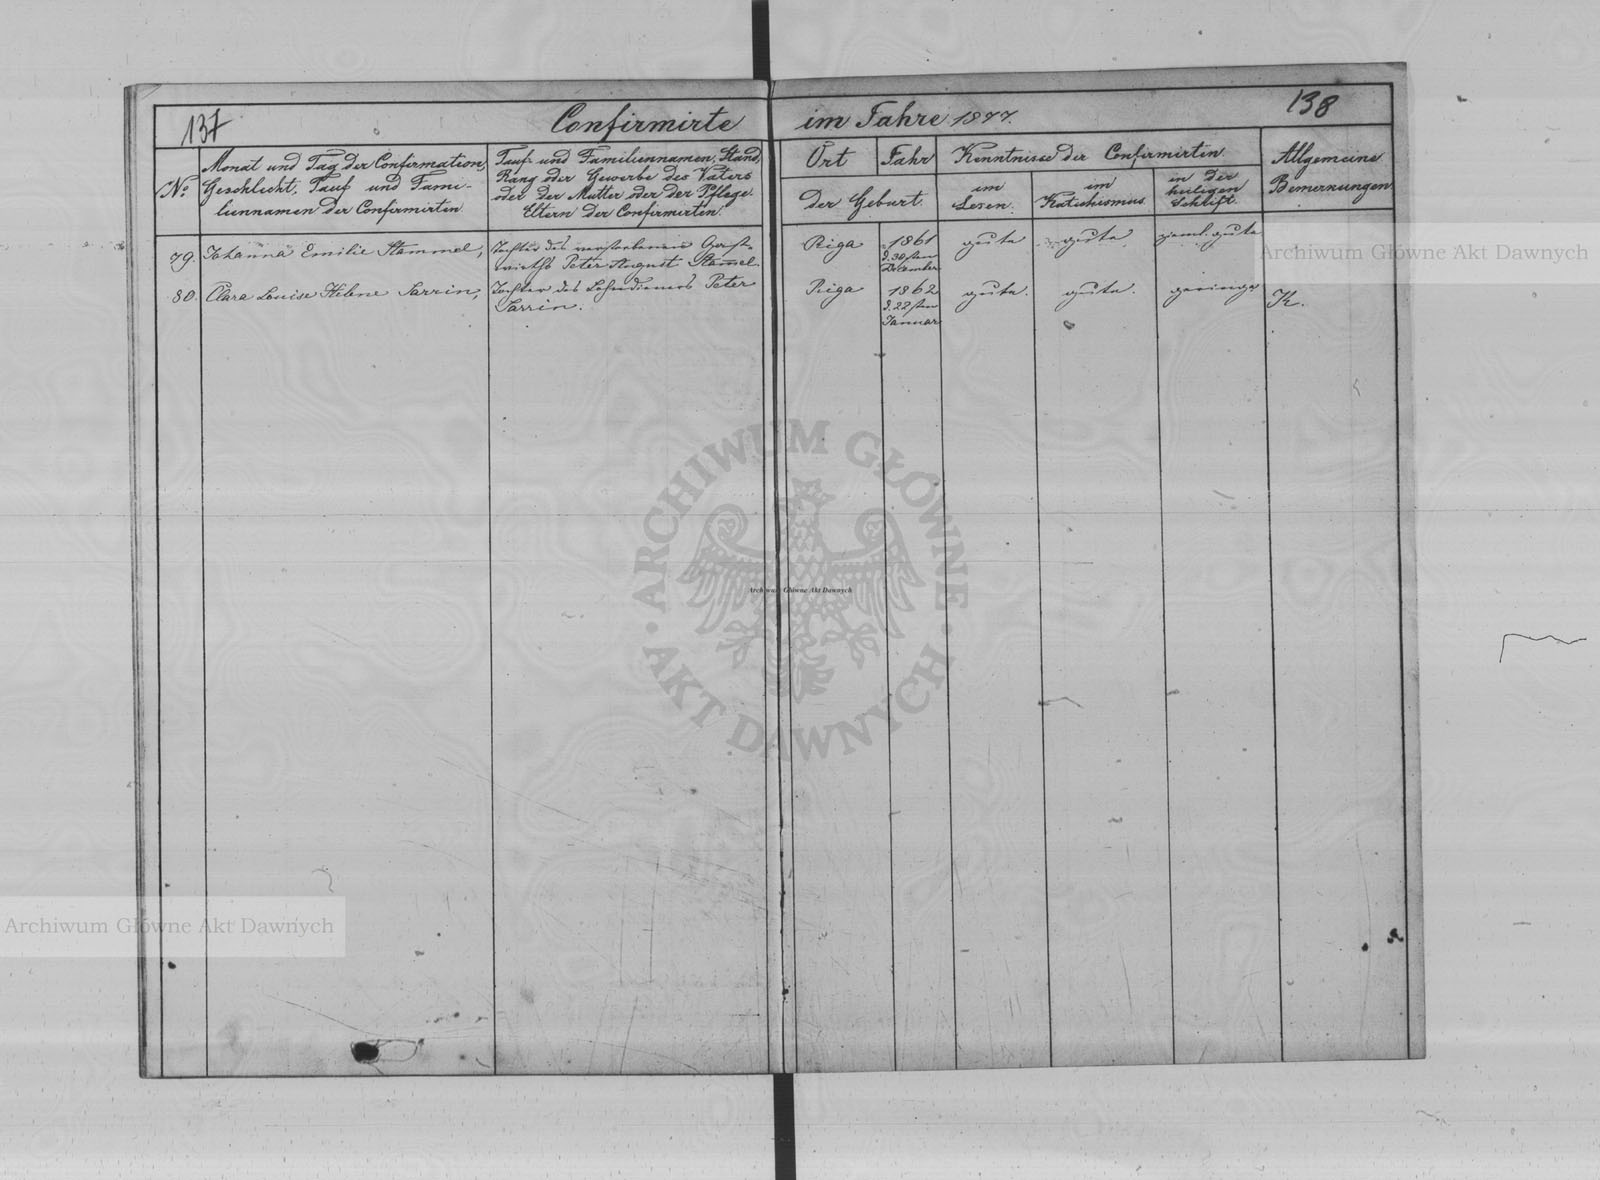 137
138
Confirmirte im Jahre 1877.
No.
Monat und Tag der Confirmation,
Geschlecht, Tauf- und Fami-
liennamen der Confirmirten.
Tauf- und Familiennamen, Stand,
Rang oder Gewerbe des Vaters
oder der Mutter oder der Pflege-
Eltern der Confirmirten.
Ort
Jahr
der Geburt.
Kenntnisse der Confirmirten
im
Lesen.
im
Katechismus
in der
heiligen
Schrift.
Allgemeine
Bemerkungen
79.
Johanna Emilie Stammel,
Tochter des verstorbenen Gast-
wirths Peter August Stammel.
Riga
1861
d. 30sten
December
gute
gute
zieml. gute
80.
Clara Louise Helene Sarrin,
Tochter des Peter
Sarrin.
Riga
1862
d. 22sten
Januar
gute.
gute.
geringe
K.
Archiwum Główne Akt Dawnych
ARCHIWUM GŁÓWNE
AKT DAWNYCH
Archiwum Główne Akt Dawnych
Archiwum Główne Akt Dawnych